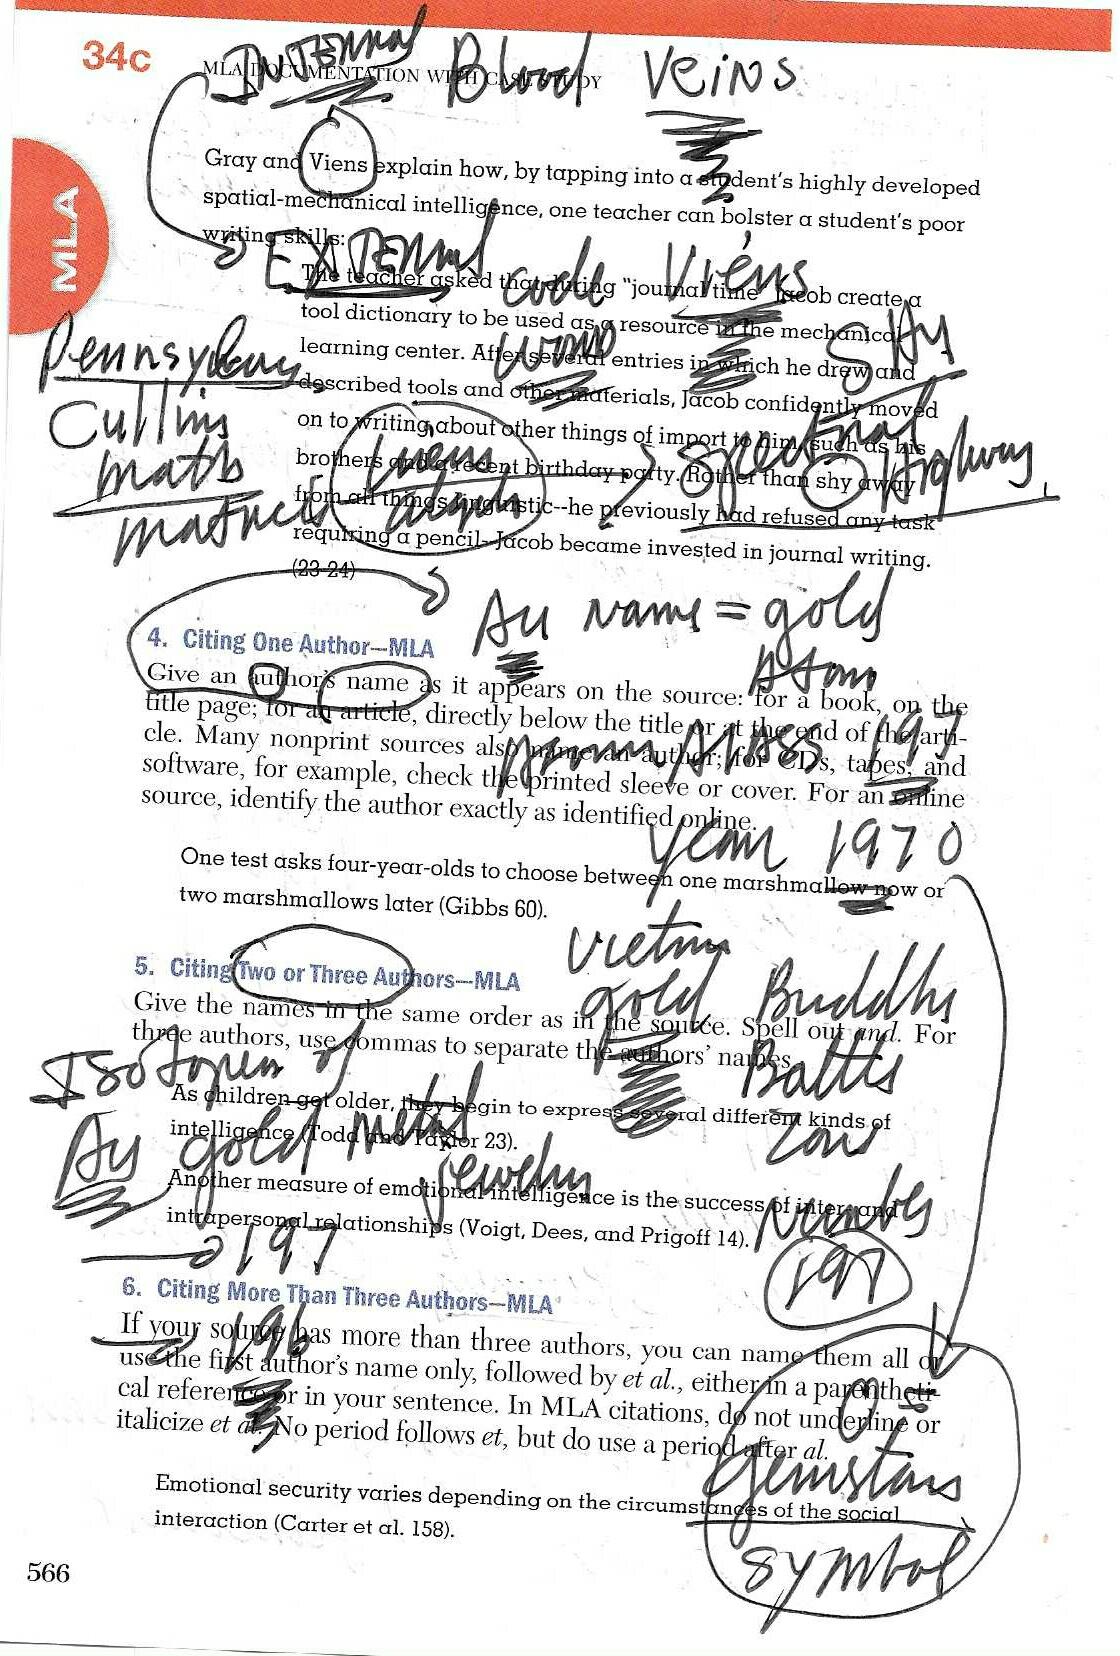 34c
MLA DOCUMENTATION WITH CASE STUDY
INTERNAL Blood VEINS
MLA
Gray and Viens explain how, by tapping into a student's highly developed
spatial-mechanical intelligence, one teacher can bolster a student's poor
writing skills:
EXTERNAL code Viens
The teacher asked that during "journal time" Jacob create a
tool dictionary to be used as a resource in the mechanical
word SKY
learning center. After several entries in which he drew and
Pennsylvania
described tools and other materials, Jacob confidently moved
Cutting
on to writing about other things of import to him, such as his
math
Spectral Highway
brothers and a recent birthday party. Rather than shy away
from all things linguistic--he previously had refused any task
requiring a pencil--Jacob became invested in journal writing.
(23-24)
Au name = gold
4. Citing One Author—MLA
Atom
Give an author's name as it appears on the source: for a book, on the
title page; for an article, directly below the title or at the end of the arti-
Atomic MASS 197
cle. Many nonprint sources also name an author; for CDs, tapes, and
software, for example, check the printed sleeve or cover. For an online
source, identify the author exactly as identified online.
year 1970
One test asks four-year-olds to choose between one marshmallow now or
two marshmallows later (Gibbs 60).
5. Citing Two or Three Authors—MLA
gold Buddhs
Give the names in the same order as in the source. Spell out and. For
three authors, use commas to separate the authors' names.
Isotopes of
As children get older, they begin to express several different kinds of
intelligence (Todd and Taylor 23).
Au gold metal
jewelry
Another measure of emotional intelligence is the success of inter- and
intrapersonal relationships (Voigt, Dees, and Prigoff 14).
Number
197
197
6. Citing More Than Three Authors—MLA
196
If your source has more than three authors, you can name them all or
use the first author's name only, followed by et al., either in a parentheti-
cal reference or in your sentence. In MLA citations, do not underline or
italicize et al. No period follows et, but do use a period after al.
of
gemstones
Emotional security varies depending on the circumstances of the social
interaction (Carter et al. 158).
symbol
566